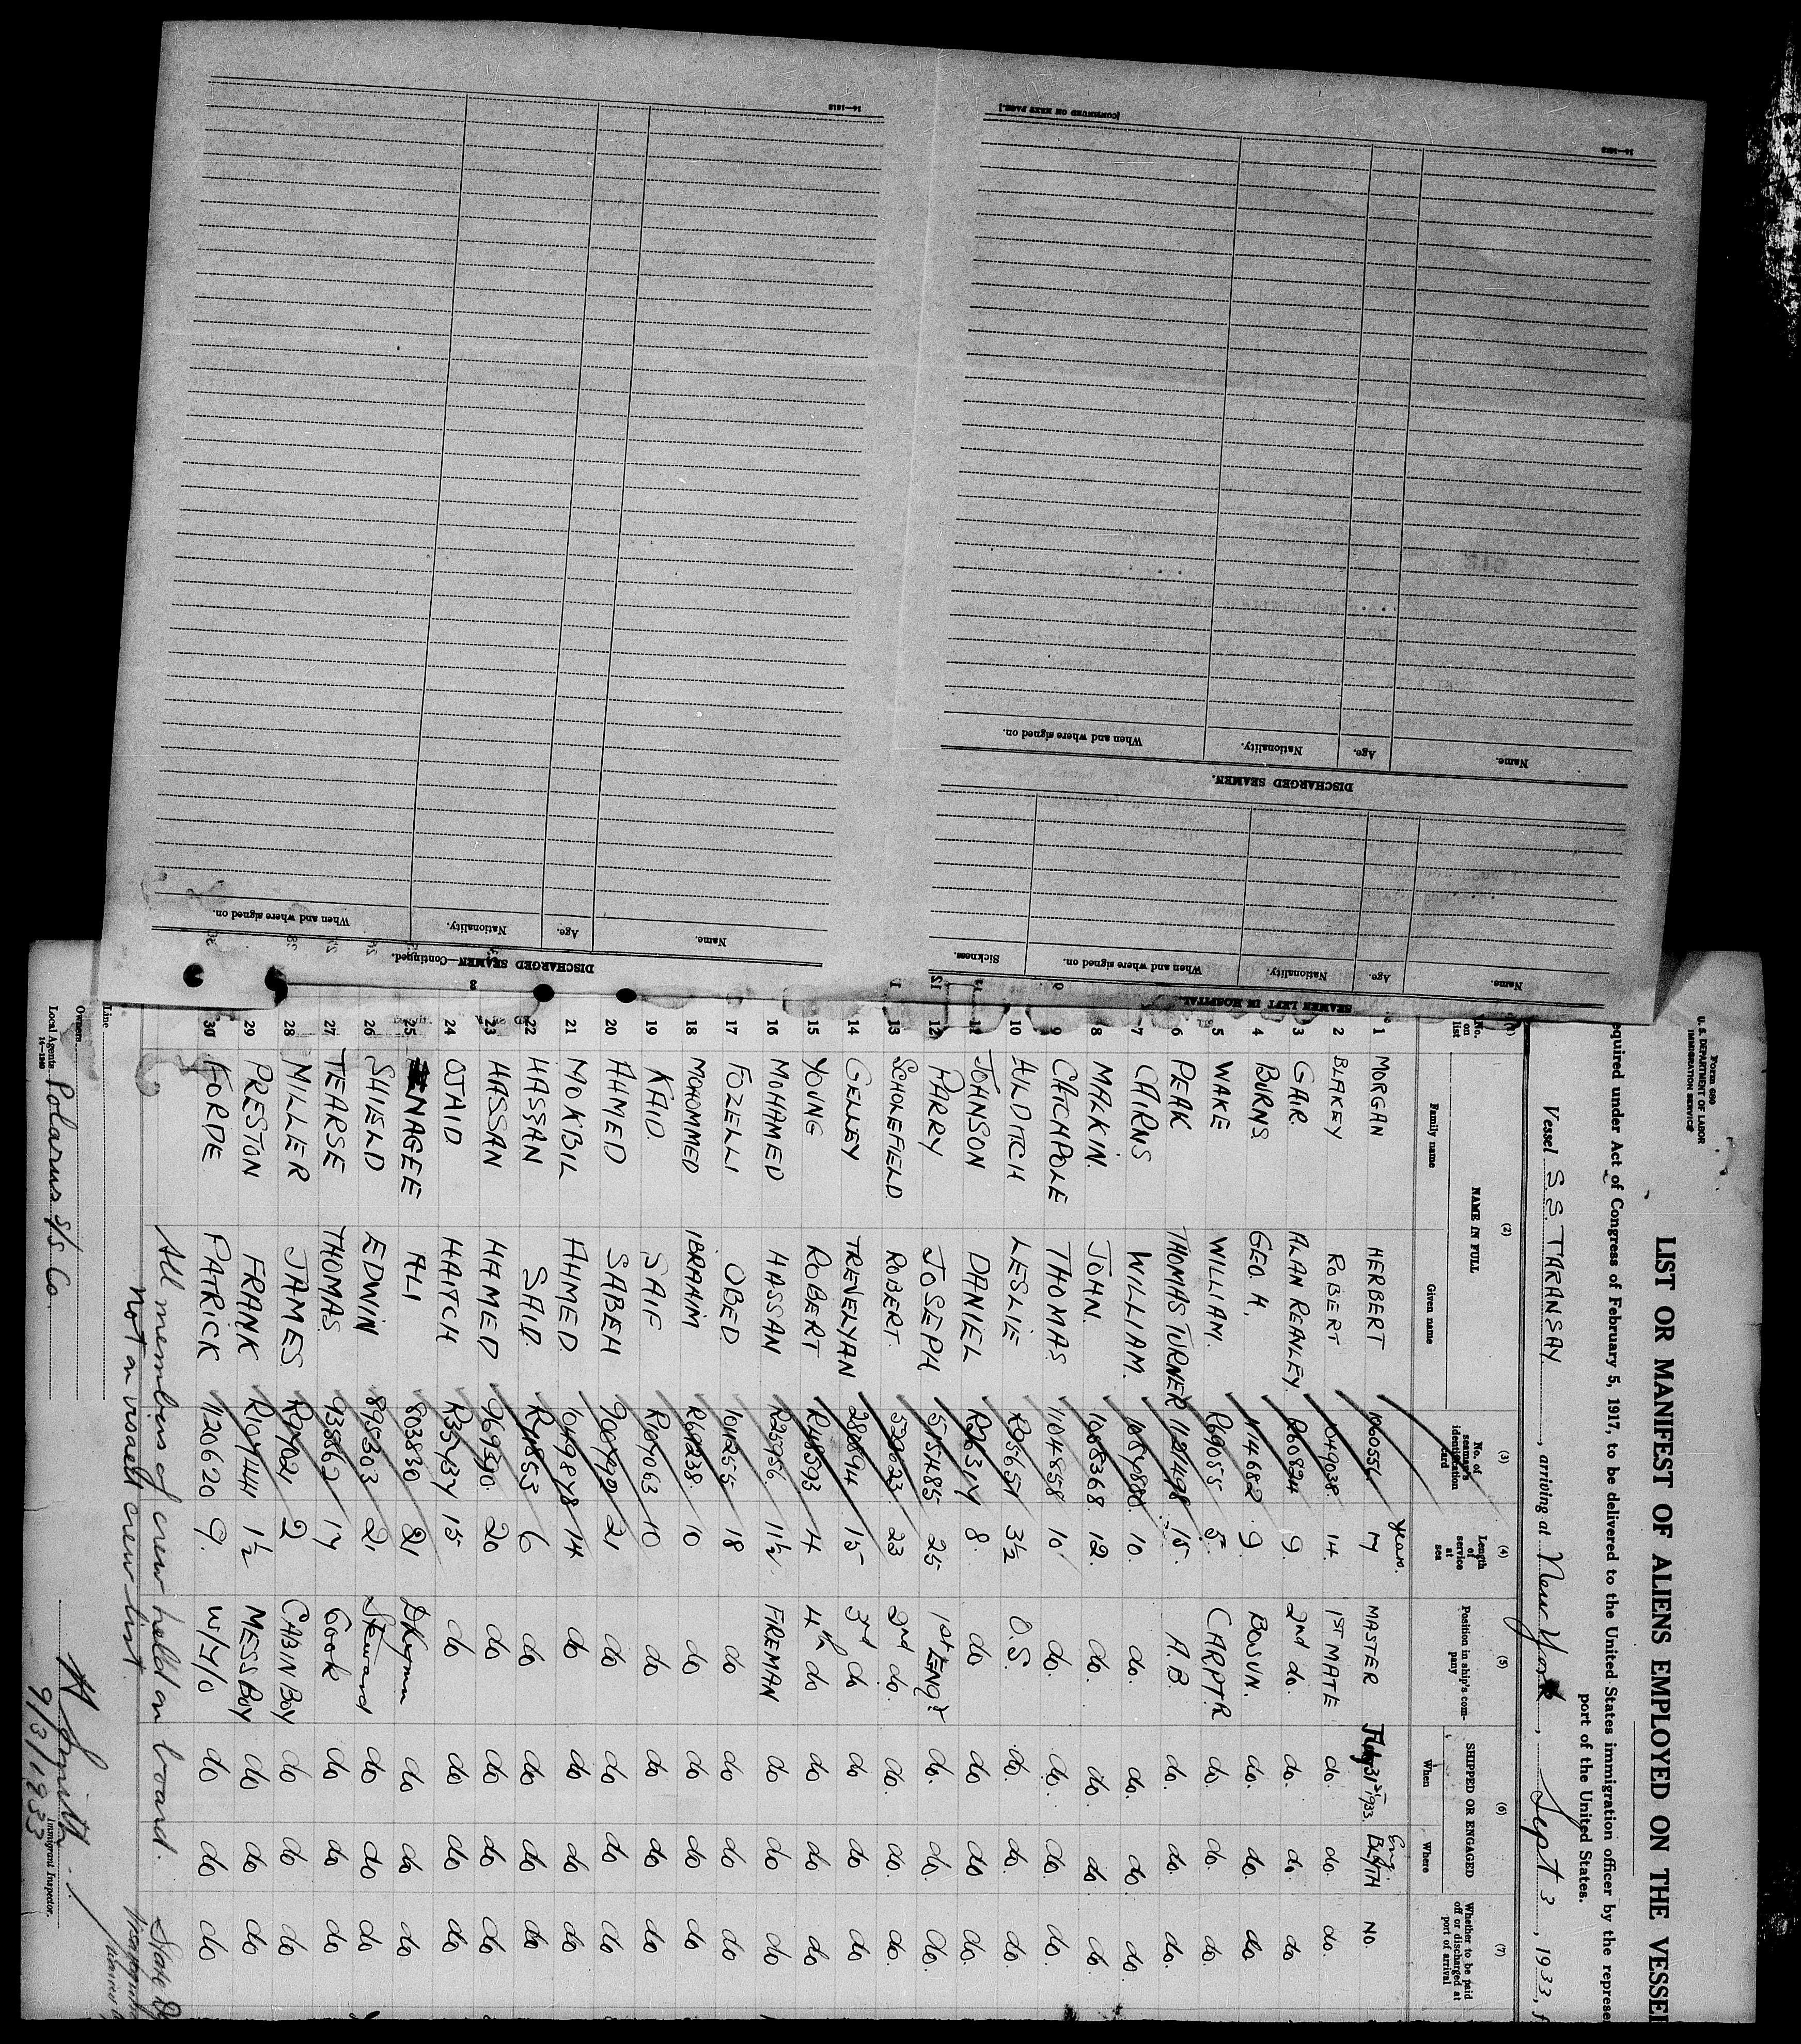 16—1613
[CONTINUED ON NEXT PAGE.]
16—1613
When and where signed on.
Nationality.
Age.
Name.
DISCHARGED SEAMEN—Continued.
3
When and where signed on.
Nationality.
Age.
Name.
DISCHARGED SEAMEN.
Sickness.
When and where signed on.
Nationality.
Age.
Name.
SEAMEN LEFT IN HOSPITAL.
Form 680
U. S. DEPARTMENT OF LABOR
IMMIGRATION SERVICE
LIST OR MANIFEST OF ALIENS EMPLOYED ON THE VESSEL
equired under Act of Congress of February 5, 1917, to be delivered to the United States immigration officer by the represen
port of the United States.
Vessel S.S. TARANSAY, arriving at New York, Sept 3, 1933, f
(1) (2) (3) (4) (5) (6) (7)
No. on list
NAME IN FULL
Family name
Given name
No. of seaman's identification card
Length of service at sea
Position in ship's company
SHIPPED OR ENGAGED
When
Where
Whether to be paid off or discharged at port of arrival
Years.
Eng.
1 MORGAN HERBERT 1060556 17 MASTER July 31st 1933. BLYTH NO.
2 BLAKEY ROBERT 1049038 14. 1ST MATE do. do. do.
3 GAIR. ALAN REANLEY. R60824 9. 2nd do. do. do. do
4 BURNS GEO. A. 1114682 9. BOSUN. do. do. do.
5 WAKE WILLIAM. R69055 5. CARPTR do. do. do.
6 PEAK THOMAS TURNER 1121498 15. A.B. do. do. do.
7 CAIRNS WILLIAM. 1054880 10. do. do. do. do.
8 MALKIN. JOHN. 1085368 12. do. do. do. do.
9 CATCHPOLE THOMAS. 1104858 10 do. do. do. do.
10 ALDITCH LESLIE R95651 3½ O.S. do. do. do.
11 JOHNSON DANIEL R26317 8. do do do do.
12 PARRY JOSEPH 515485 25 1st ENGR do. do. do.
13 SCHOLEFIELD. ROBERT. 520623 23 2nd do. do. do. do.
14 GELLEY TREVELYAN 280894 15 3rd do do. do do
15 YOUNG ROBERT R48593 4 4th do do do do
16 MOHAMED HASSAN R25956 11½ FIREMAN do do do
17 FOZELLI OBED 1041255 18 do do do do
18 MOHOMMED IBRAHIM R69238 10 do do do do
19 KAID. SAIF R19063 10 do do do do
20 AHMED SABEH 900792 21 do do do do
21 MOKBIL AHMED 1049878 14 do do do do
22 HASSAN SAID. R41853 6 do do do do
23 HASSAN HAMED 969590 20 do do do do
24 OJAID HAITCH R35737 15 do do do do
25 NAGEE ALI 803830 21 Dkyman do do do
26 SHIELD EDWIN 895303 21 Steward do do do
27 TEARSE THOMAS. 935562 17 Cook do do do
28 MILLER JAMES R97021 2 CABIN BOY do do do
29 PRESTON FRANK R107441 1½ MESS BOY do do do
30 FORDE PATRICK 1120620 9. W/T/O do do do
All members of crew held on board.
Not on visaed crew list.
State
Line
Owners
Local Agents Polarus S/S Co.
16—1240
Smith
Immigrant Inspector.
9/3/1933